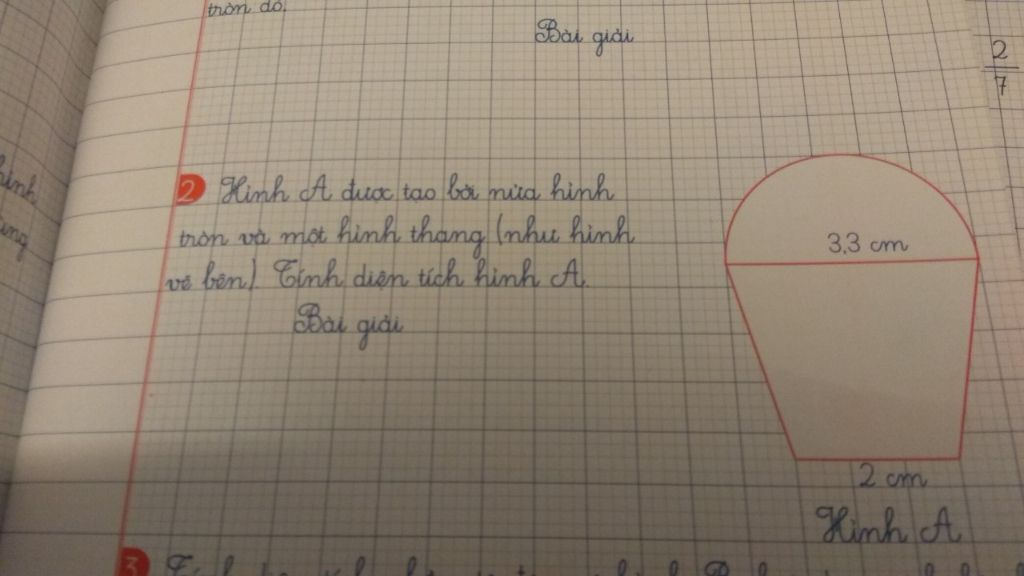 tròn đó.
Bài giải
2
7
2 Hình A được tạo bởi nửa hình
tròn và một hình thang (như hình
vẽ bên) Tính diện tích hình A.
Bài giải
3,3 cm
2 cm
Hình A
hình
3